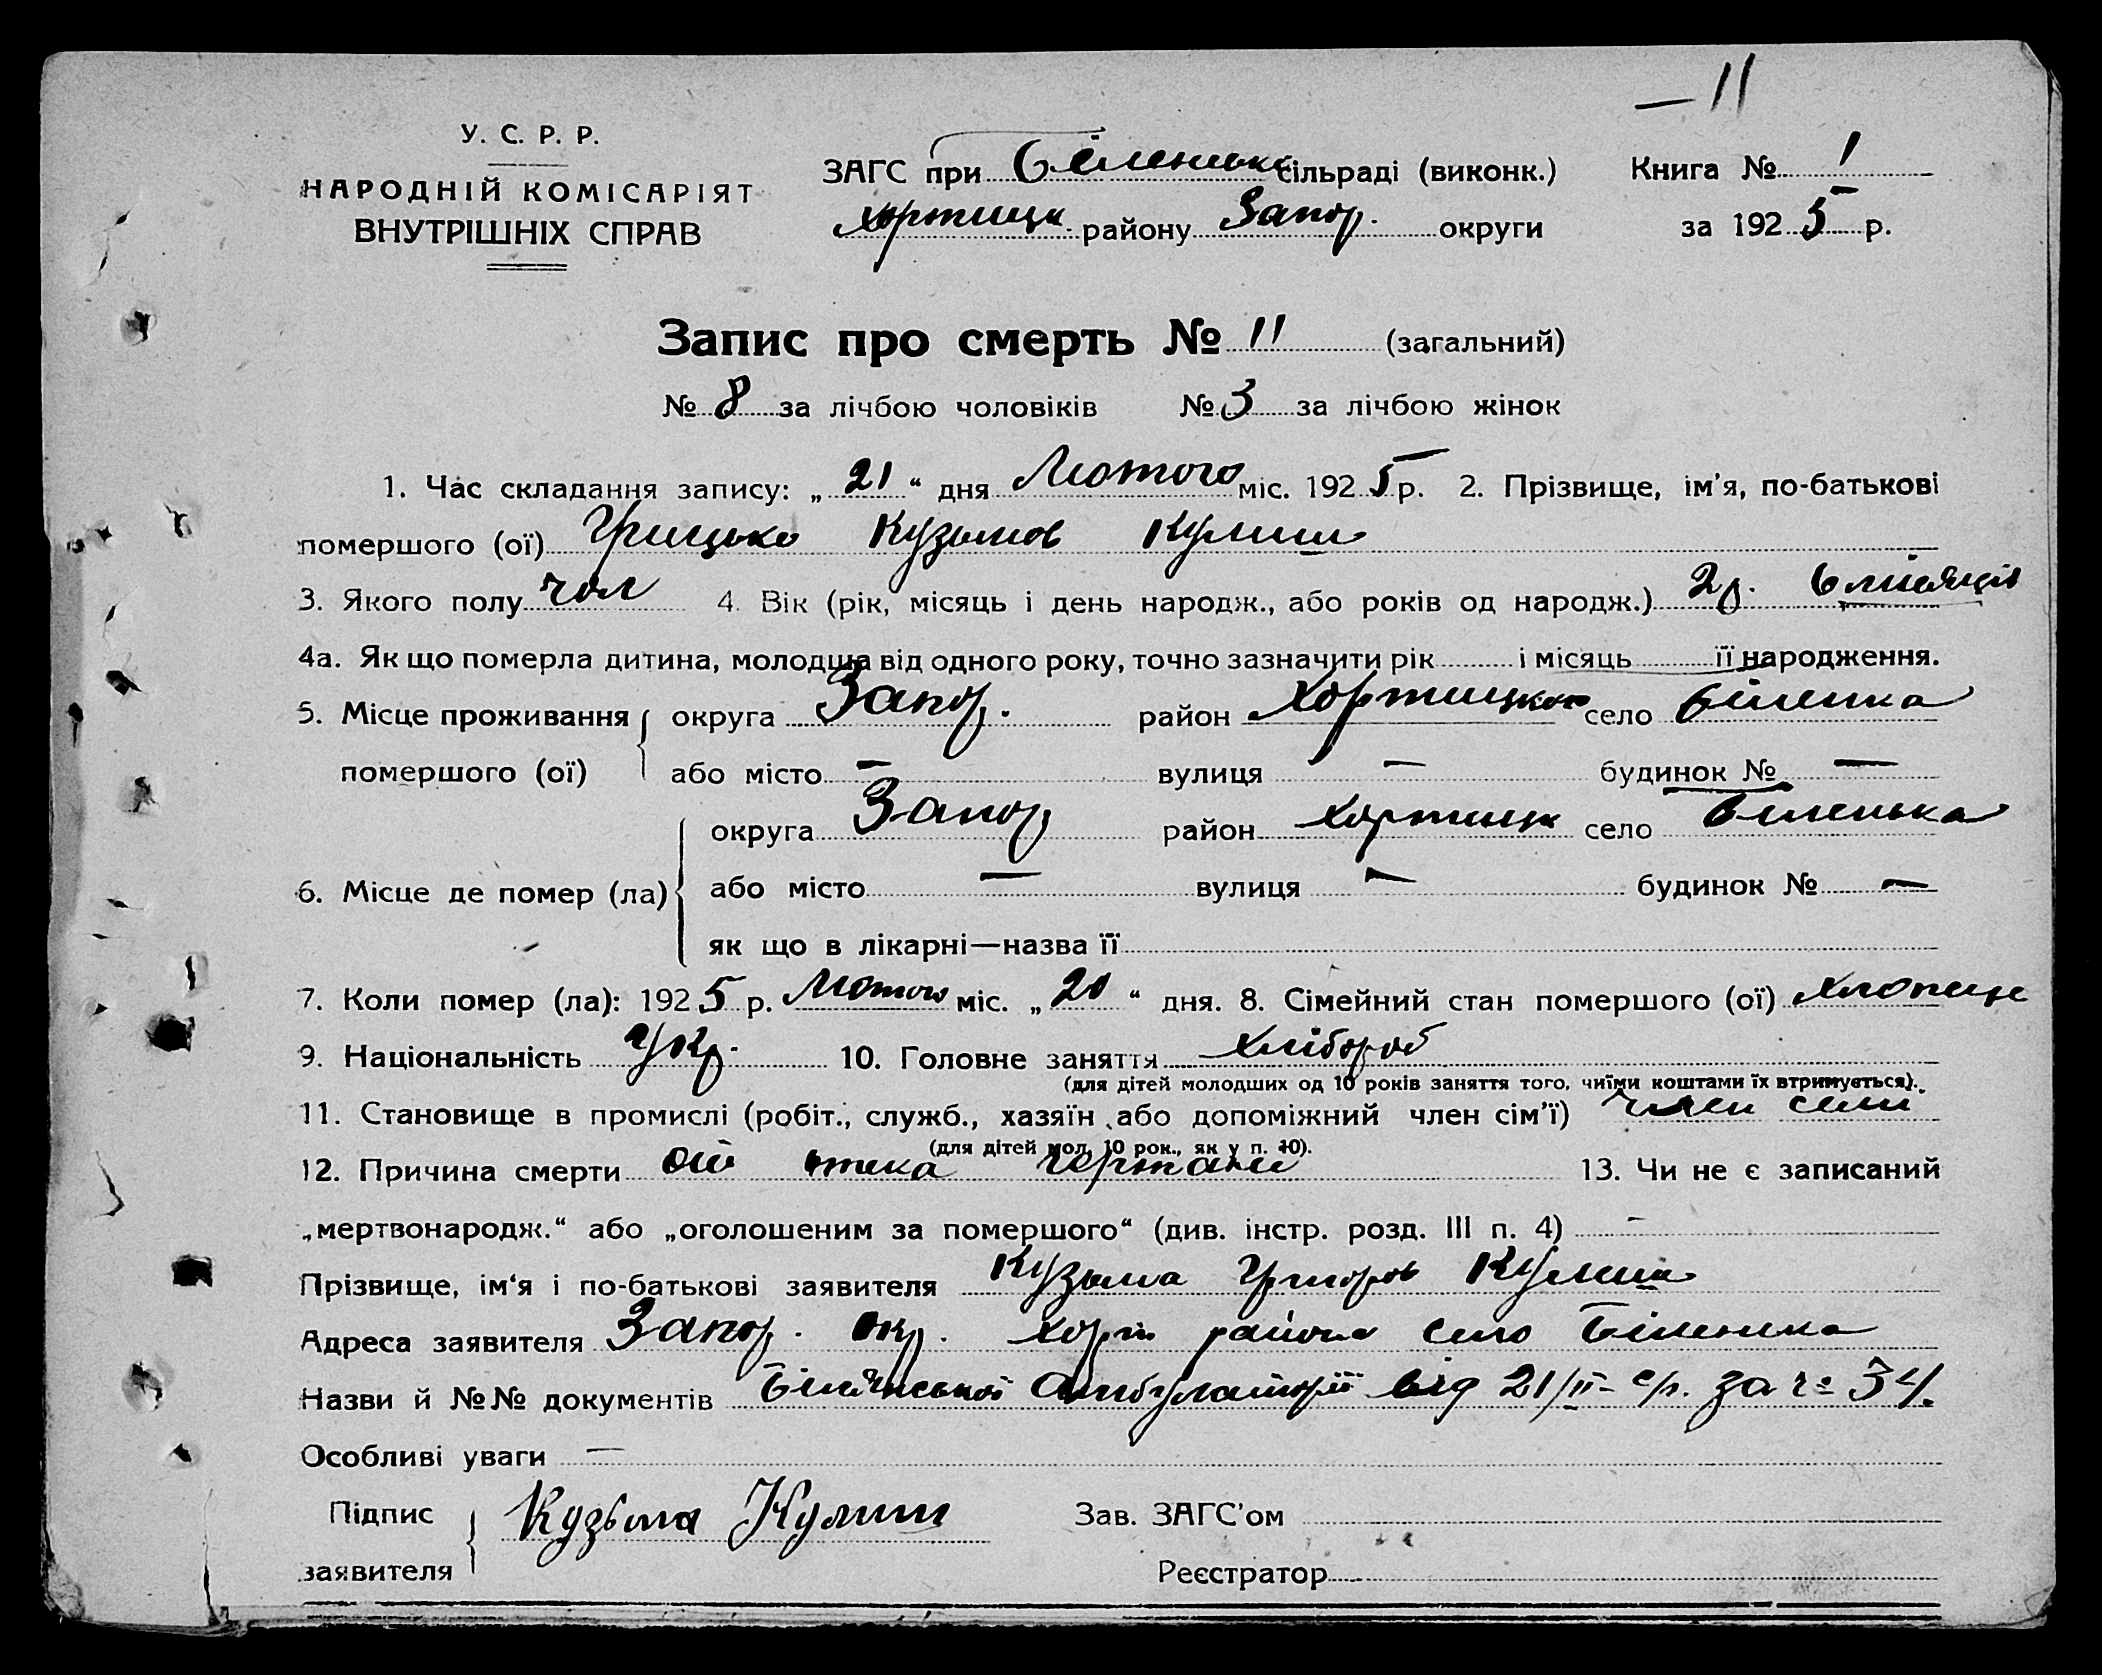 — 11
У. С. Р. Р.
НАРОДНІЙ КОМІСАРІЯТ
ВНУТРІШНІХ СПРАВ
ЗАГС при Біленьке сільраді (виконк.) Книга № 1
Хортицк. району Запор. округи за 1925 р.
Запис про смерть № 11 (загальний)
№ 8 за лічбою чоловіків № 3 за лічбою жінок
1. Час складання запису: „21“ дня Лютого міс. 1925 р. 2. Прізвище, ім'я, по-батькові
помершого (ої) Грицько Кузьмов Кулиш
3. Якого полу чол 4. Вік (рік, місяць і день народж., або років од народж.) 2р. 6 місяців
4а. Як що померла дитина, молодша від одного року, точно зазначити рік і місяць її народження.
5. Місце проживання округа Запор. район Хортицько село Біленка
помершого (ої) або місто — вулиця — будинок № —
округа Запор район Хортицк село Біленька
6. Місце де помер (ла) або місто — вулиця — будинок № —
як що в лікарні—назва її
7. Коли помер (ла): 1925 р. Лютого міс. „20“ дня. 8. Сімейний стан помершого (ої) хлопець
9. Національність Укр. 10. Головне заняття хлібороб
(для дітей молодших од 10 років заняття того, чиїми коштами їх втримується).
11. Становище в промислі (робіт., служб., хазяїн або допоміжний член сім'ї) член семи
(для дітей мол. 10 рок., як у п. 10).
12. Причина смерти отека 13. Чи не є записаний
„мертвонародж.“ або „оголошеним за помершого“ (див. інстр. розд. III п. 4) —
Прізвище, ім'я і по-батькові заявителя Кузьма Григоров Кулиш
Адреса заявителя Запор. окр. Хорт району село Біленька
Назви й №№ документів Амбулаторії від 21/II- с/р. за ч= 34.
Особливі уваги —
Підпис Кузьма Кулиш Зав. ЗАГС'ом
заявителя Реєстратор